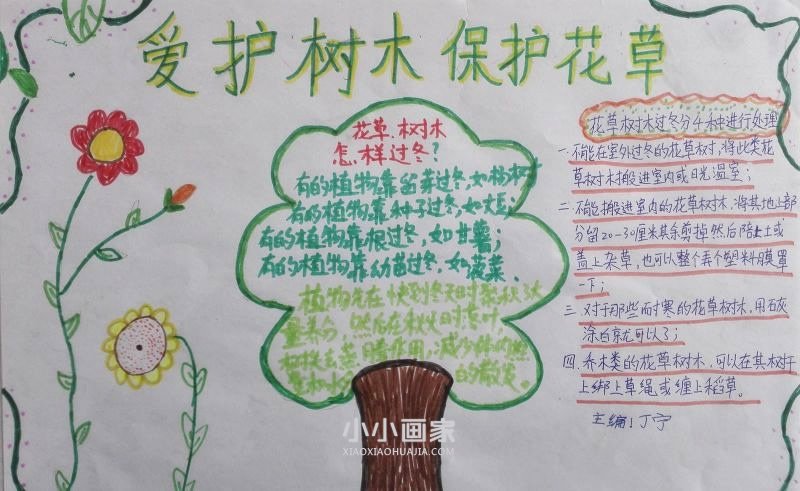 爱护树木 保护花草
花草.树木
怎样过冬?
有的植物靠留芽过冬,如杨树
有的植物靠种子过冬,如大豆;
有的植物靠根过冬,如甘薯;
有的植物靠幼苗过冬,如菠菜.
植物先在快到冬时
量养 然后在秋父时落叶,
的散发。
花草树木过冬分4种进行处理
一.不能在室外过冬的花草树木,将此类花
草树木搬进室内或日光温室;
二.不能搬进室内的花草树木.将其地上部
分留20-30厘米其余剪掉然后陪上土或
盖上杂草,也可以整个弄个塑料膜罩
一下;
三.对于那些而寒的花草树木,用石灰
涂白就可以了;
四.乔木类的花草树木,可以在其树干
上绑上草绳或缠上稻草。
主编:丁宁
小小画家
XIAOXIAOHUAJIA.COM